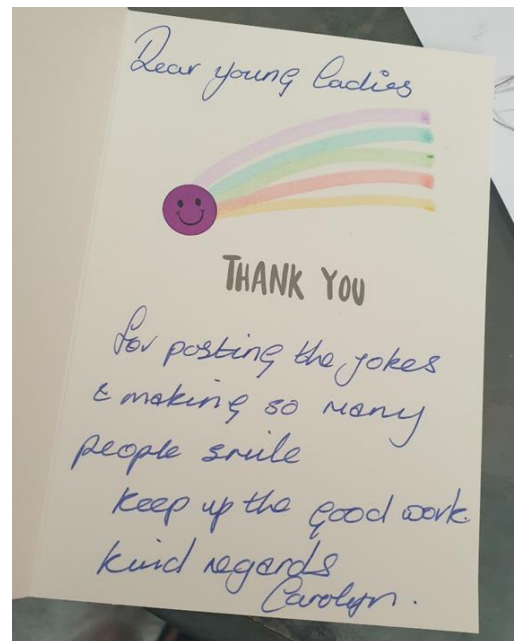 Dear young ladies
THANK YOU
for posting the jokes
& making so many
people smile
keep up the good work.
kind regards
Carolyn.